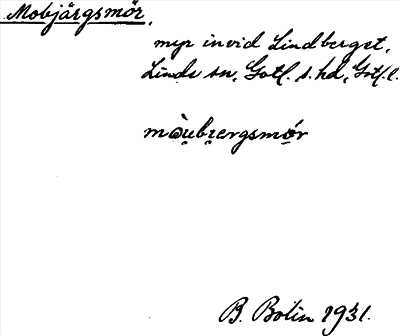 Mobjärgsmör,
myr invid Lindberget,
Linde sn, Gotl. s. hd, Gotl. l.
mòu̯bɪ̯ergsmo̤r
B. Bolin 1931.